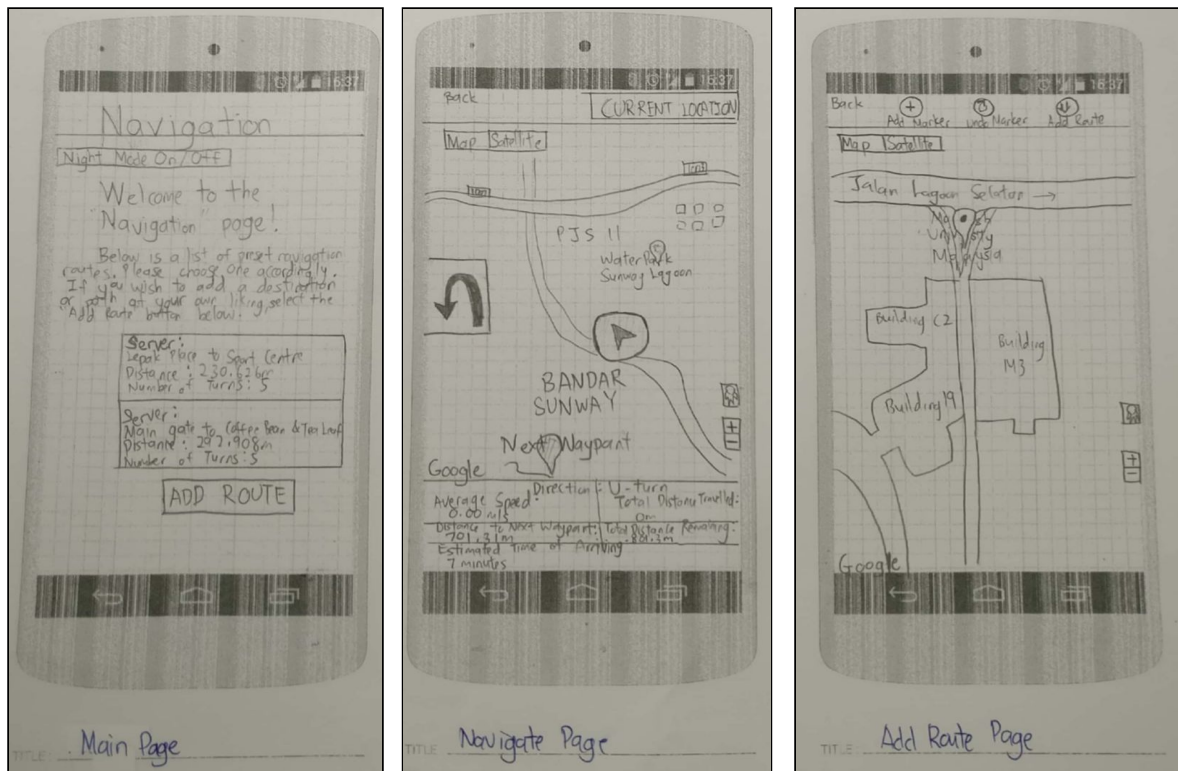 16:37
Navigation
Night Mode On/Off
Welcome to the
"Navigation" page!
Below is a list of preset navigation
routes. Please choose one accordingly.
If you wish to add a destination
or path at your own liking, select the
"Add Route" button below.
Server:
Lepak Place to Sport Centre
Distance: 230.626m
Number of Turns: 5
Server:
Main gate to Coffee Bean & Tea Leaf
Distance: 292.908m
Number of Turns: 5
ADD ROUTE
TITLE: Main Page
16:37
Back
CURRENT LOCATION
Map Satellite
PJS 11
Water Park
Sunway Lagoon
BANDAR
SUNWAY
Next Waypoint
Google
Direction: U-turn
Average Speed:
0.00 m/s
Total Distance Travelled:
0m
Distance to Next Waypoint:
701.31m
Total Distance Remaining:
Estimated Time of Arriving
7 minutes
TITLE: Navigate Page
16:37
Back
Add Marker
Undo Marker
Add Route
Map Satellite
Jalan Lagoon Selatan →
Monash
University
Malaysia
Building C2
Building
M3
Building 19
Google
TITLE: Add Route Page